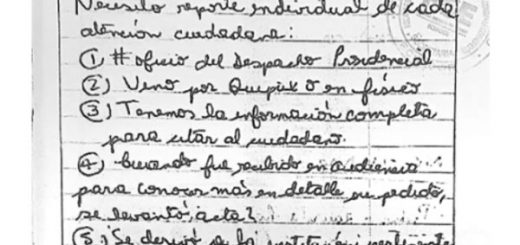 Necesito reporte individual de cada
atención ciudadana:
① # oficio del Despacho Presidencial
② Vino por Quipux o en físico
③ Tenemos la información completa
para citar al ciudadano.
④ Cuando fue recibido en audiencia
para conocer más en detalle su pedido,
se levantó acta?
⑤ ¿Se derivó a la institución pertinente